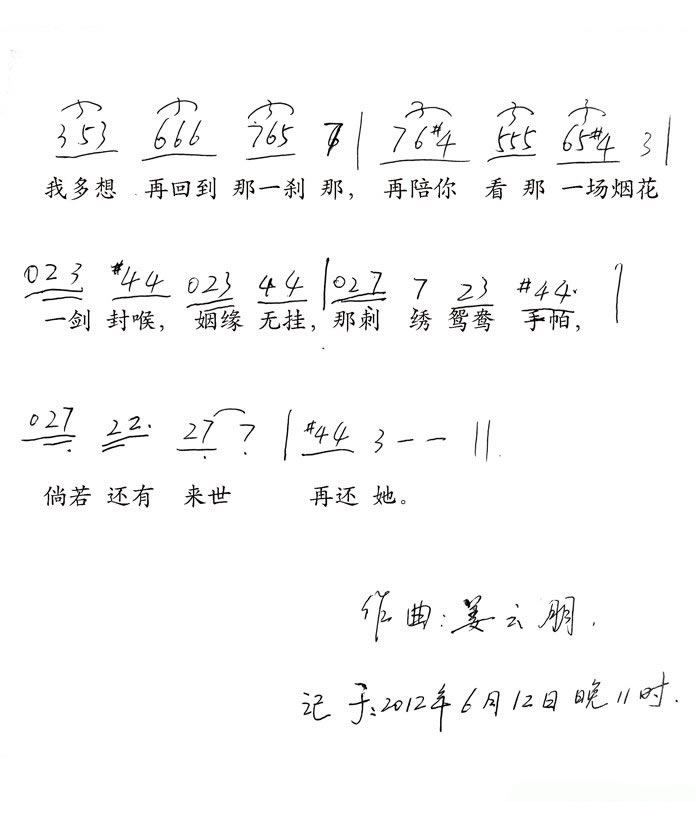 3 353 666 765 6 | 76#4 555 65#4 3 |
我多想 再回到 那一刹 那， 再陪你 看 那 一场烟花
023 #44 023 44 | 027 7 23 #44. |
一剑 封喉， 姻缘 无挂， 那刺 绣 鸳鸯 手帕，
027 22. 27 7 | #44 3 — — ||
倘若 还有 来世 再还 她。
作曲：姜云朋.
记于：2012年6月12日晚11时.